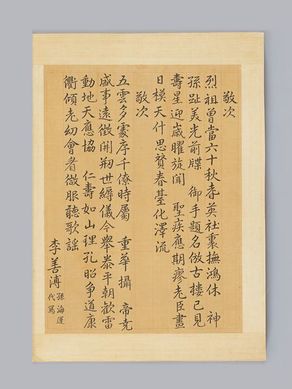 敬次
烈祖曾當六十秋耆英社裏撫鴻休 神
孫趾美光前牒 御手題名倣古樓已見
壽星迎歲曜旋聞 聖疾應期瘳老臣晝
日模天什思贊春臺化澤流
敬次
五雲多處序千僚時屬 重華攝 帝堯
盛事遠徵開刱世縟儀今擧泰平朝歡雷
動地天應協 仁壽如山理孔昭爭道康
衢傾老幼會者儆服聽歌謠
李善溥
孫海運
代寫